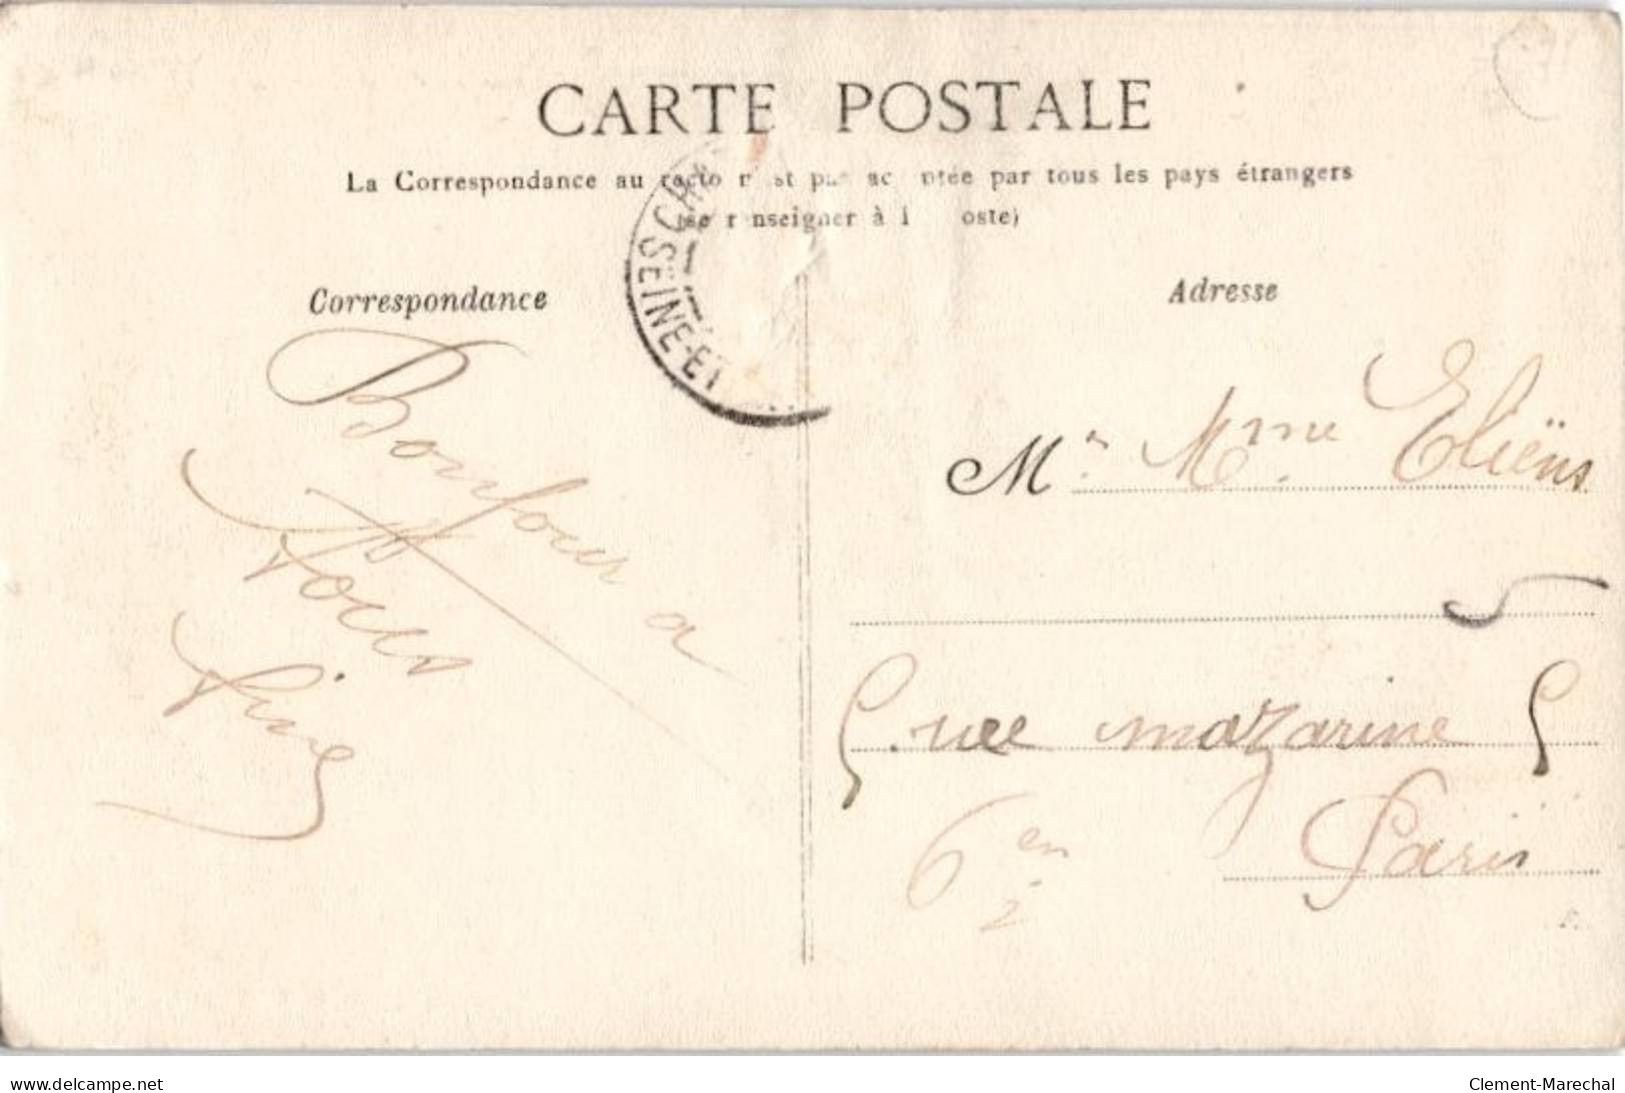 CARTE POSTALE
La Correspondance au recto n'est pas acceptée par tous les pays étrangers
(se renseigner à la Poste)
CH
SEINE-ET
Correspondance
Adresse
Bonjour a
tous
M Mme Eliëns
5
rue mazarine 5
Paris
6
delcampe.net
Clement-Marechal